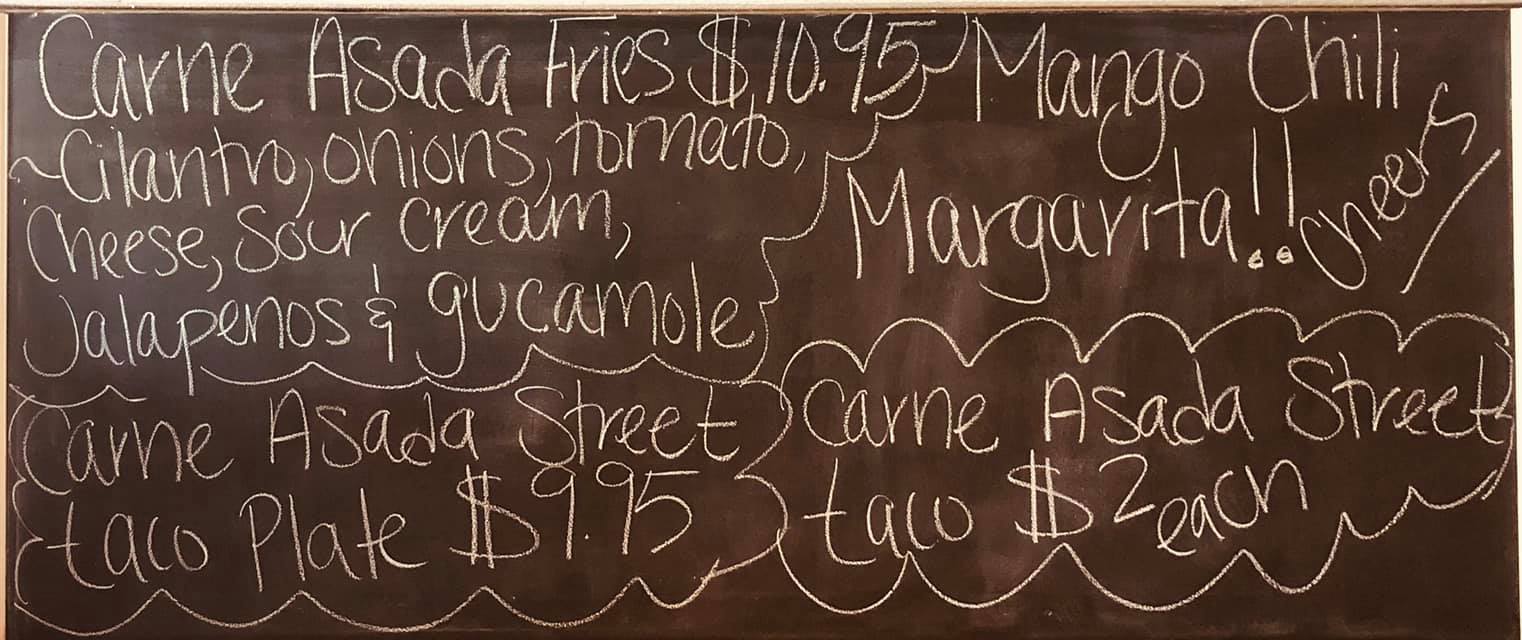 Carne Asada Fries $10.95
~Cilantro, onions, tomato,
Cheese, Sour cream,
Jalapenos & gucamole
Mango Chili
Margarita!! Cheers
Carne Asada Street
taco Plate $9.95
Carne Asada Street
taco $2 each